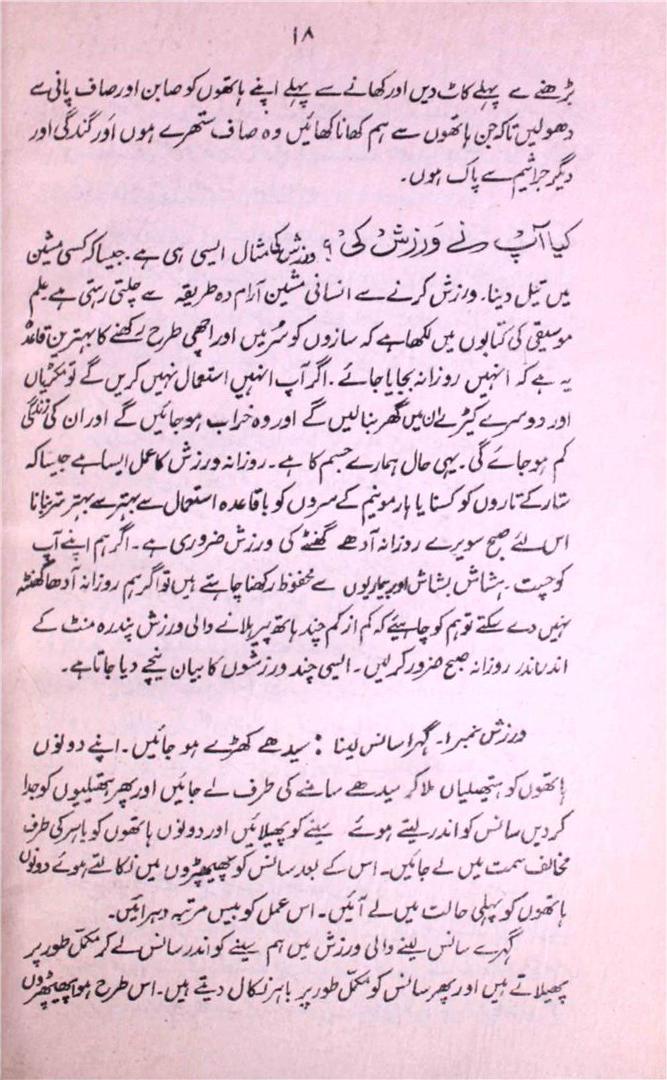 ۱۸
بڑھنے سے پہلے کاٹ دیں اور کھانے سے پہلے اپنے ہاتھوں کو صابن اور صاف پانی سے
دھولیں تاکہ جن ہاتھوں سے ہم کھانا کھائیں وہ صاف ستھرے ہوں اور گندگی اور
دیگر جراثیم سے پاک ہوں۔
کیا آپ نے ورزش کی؟ ورزش کی مثال ایسی ہی ہے۔ جیسا کہ کسی مشین
میں تیل دینا۔ ورزش کرنے سے انسانی مشین آرام دہ طریقہ سے چلتی رہتی ہے۔ علم
موسیقی کی کتابوں میں لکھا ہے کہ سازوں کو سُر میں اور اچھی طرح رکھنے کا بہترین قاعدہ
یہ ہے کہ انہیں روزانہ بجایا جائے۔ اگر آپ انہیں استعمال نہیں کریں گے تو مکڑیاں
اور دوسرے کیڑے ان میں گھر بنالیں گے اور وہ خراب ہو جائیں گے اور ان کی زندگی
کم ہو جائے گی۔ یہی حال ہمارے جسم کا ہے۔ روزانہ ورزش کا عمل ایسا ہے جیسا کہ
ستار کے تاروں کو کسنا یا ہارمونیم کے سروں کو باقاعدہ استعمال سے بہتر سے بہتر تر بنانا
اس لئے صبح سویرے روزانہ آدھے گھنٹے کی ورزش ضروری ہے۔ اگر ہم اپنے آپ
کو چست ہشاش بشاش اور بیماریوں سے محفوظ رکھنا چاہتے ہیں تو اگر ہم روزانہ آدھا گھنٹہ
نہیں دے سکتے تو ہم کو چاہیئے کہ کم از کم چند ہاتھ پیر ہلانے والی ورزش پندرہ منٹ کے
اندر اندر روزانہ صبح ضرور کر لیں۔ ایسی چند ورزشوں کا بیان نیچے دیا جاتا ہے۔
ورزش نمبر ۱۔ گہرا سانس لینا : سیدھے کھڑے ہو جائیں۔ اپنے دونوں
ہاتھوں کو ہتھیلیاں ملا کر سیدھے سامنے کی طرف لے جائیں اور پھر ہتھیلیوں کو جدا
کر دیں سانس کو اندر لیتے ہوئے سینے کو پھیلائیں اور دونوں ہاتھوں کو باہر کی طرف
مخالف سمت میں لے جائیں۔ اس کے بعد سانس کو پھیپھڑوں میں نکالتے ہوئے دونوں
ہاتھوں کو پہلی حالت میں لے آئیں۔ اس عمل کو بیس مرتبہ دہرائیں۔
گہرے سانس لینے والی ورزش میں ہم سینے کو اندر سانس لے کر مکمل طور پر
پھیلاتے ہیں اور پھر سانس کو مکمل طور پر باہر نکال دیتے ہیں۔ اس طرح ہوا پھیپھڑوں